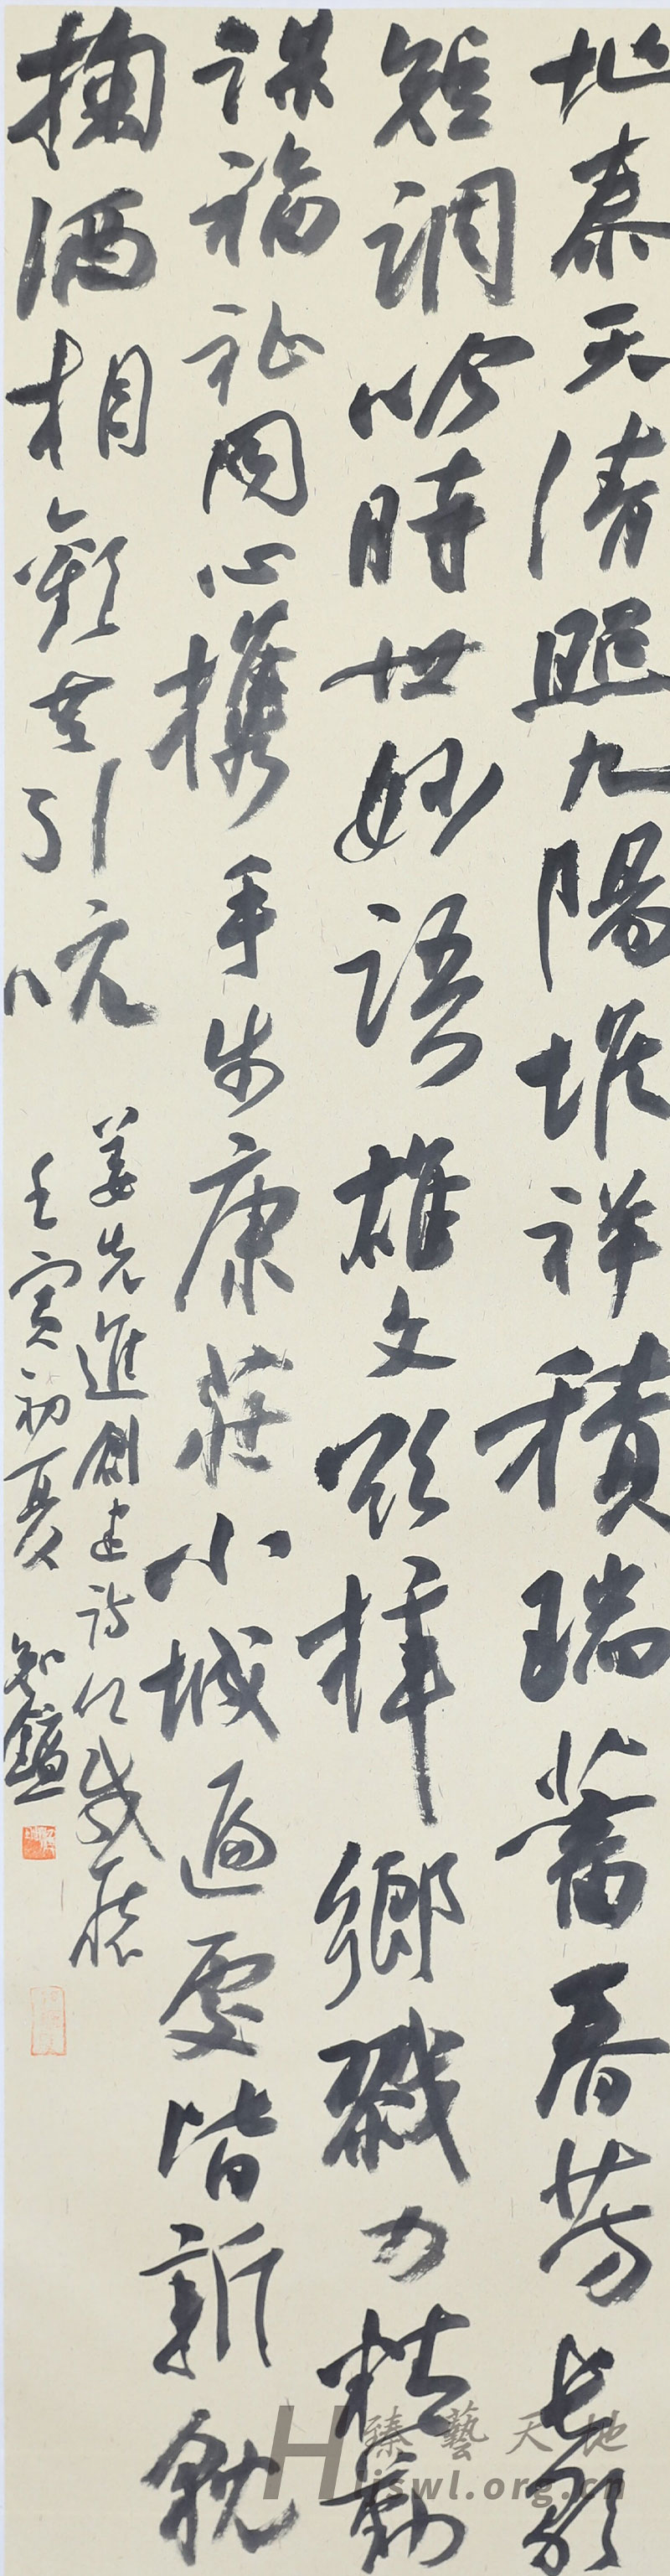 地泰天清照九陽堆祥積瑞舊春芳長歌
短調吟時世妙語雄文頌梓鄉戮力精勤
謀福祉同心攜手步康莊小城遍處皆新貌
掬酒相歡共引吭
姜先進創建詩仙感懷
壬寅初夏 知鐙
臻藝天地
Hjswl.org.cn